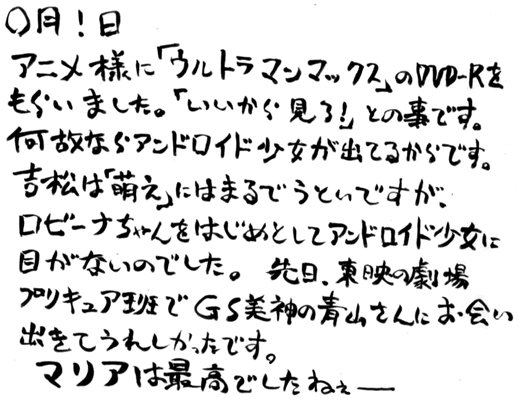 ○月!日
アニメ様に「ウルトラマンマックス」のDVD-Rを
もらいました。「いいから見ろ!」との事です。
何故ならアンドロイド少女が出てるからです。
吉松は「萌え」にはまるでうといですが、
ロビーナちゃんをはじめとしてアンドロイド少女に
目がないのでした。 先日、東映の劇場
プリキュア班でGS美神の青山さんにお会い
出きてうれしかったです。
マリアは最高でしたねぇ――